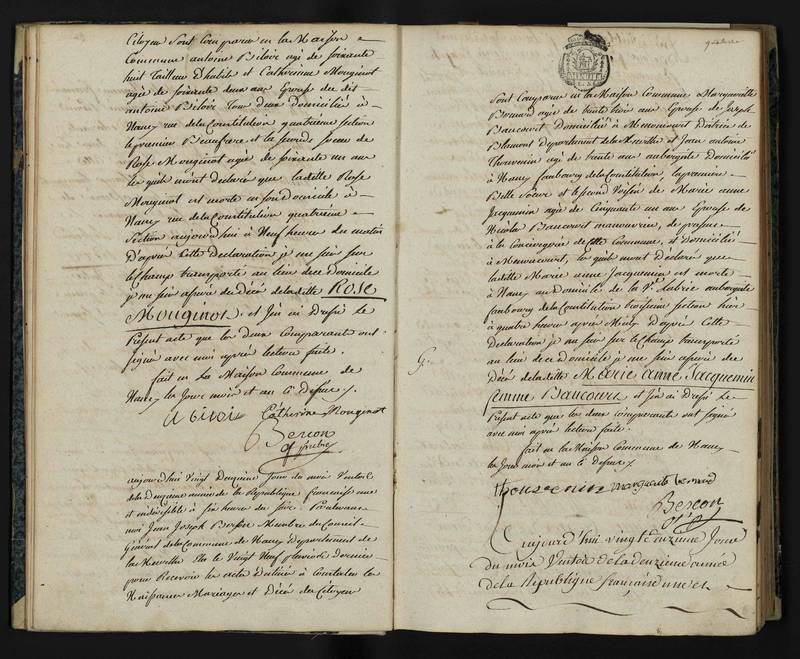 Citoyen sont comparu en la Maison
Commune antoine Biloir agé de soixante
huit tailleur d'habits et Catherine Mouginot
agée de soixante deux ans Epouse du dit
antoine Biloir tous deux Domiciliés à
Nancy rue de la Constitution quatrieme section
le premier Beaufrere et la seconde soeur de
Rose Mouginot agée de soixante un ans
les quels m'ont declaré que laditte Rose
Mouginot est morte en son Domicile à
Nancy rue de la Constitution quatrieme
section aujourd'hui à Neuf heures du matin
D'après cette Declaration je me suis sur
le champ transporté au lieu de ce Domicile
je me suis assuré du Décé de laditte Rose
Mouginot. et j'en ai Dressé le
Présent acte que les deux comparants ont
signé avec moi après lecture faite.
fait en la Maison Commune de
Nancy les jour mois et an ci Dessus.
a Biloir Catherine Mouginot
Berson
off. public
aujourd'hui vingt Deuxieme jour du mois Ventose
de la Deuxieme année de la République françoise une
et indivisible à six heures du soir Pardevant
moi Jean Joseph Berson Membre du Conseil
Général de la Commune de Nancy Departement de
la Meurthe Elu le Vingt Neuf pluviose Dernier
pour Recevoir les actes Destinés à Constater les
Naissances Mariages et Décé des Citoyens
sont Comparus en la Maison Commune Margueritte
Bernard agée de trente trois ans Epouse de Joseph
Bancourt Domiciliée à Menoncourt District de
Blamont departement de la Meurthe et Jean antoine
Thouvenin agé de trente ans aubergiste Domicilié
à Nancy faubourg de la Constitution, la premiere
Belle Soeur et le second Voisin de Marie anne
Jacquemin agée de Cinquante un ans Epouse de
Nicolas Bancourt manoeuvre, de presens
à la conciergerie de cette Commune, et domicilié
à Menoncourt, les quels m'ont declaré que
laditte Marie anne Jacquemin est morte
à Nancy au Domicile de la Ve Labrie aubergiste
faubourg de la Constitution troisieme section hier
à quatre heures après Midy D'après Cette
Declaration je me suis sur le champ transporté
au lieu de ce Domicile je me suis assuré du
Décé de laditte Marie anne Jacquemin
femme Bancourt et j'en ai Dressé le
Présent acte que les deux comparants ont signé
avec moi après lecture faite.
fait en la Maison Commune de Nancy
les jour mois et an ci dessus.
thouvenin marguerite bernard
Berson
off. p.
aujourd'hui vingt deuxieme jour
du mois Ventose de la deuxieme année
de la République françoise une et